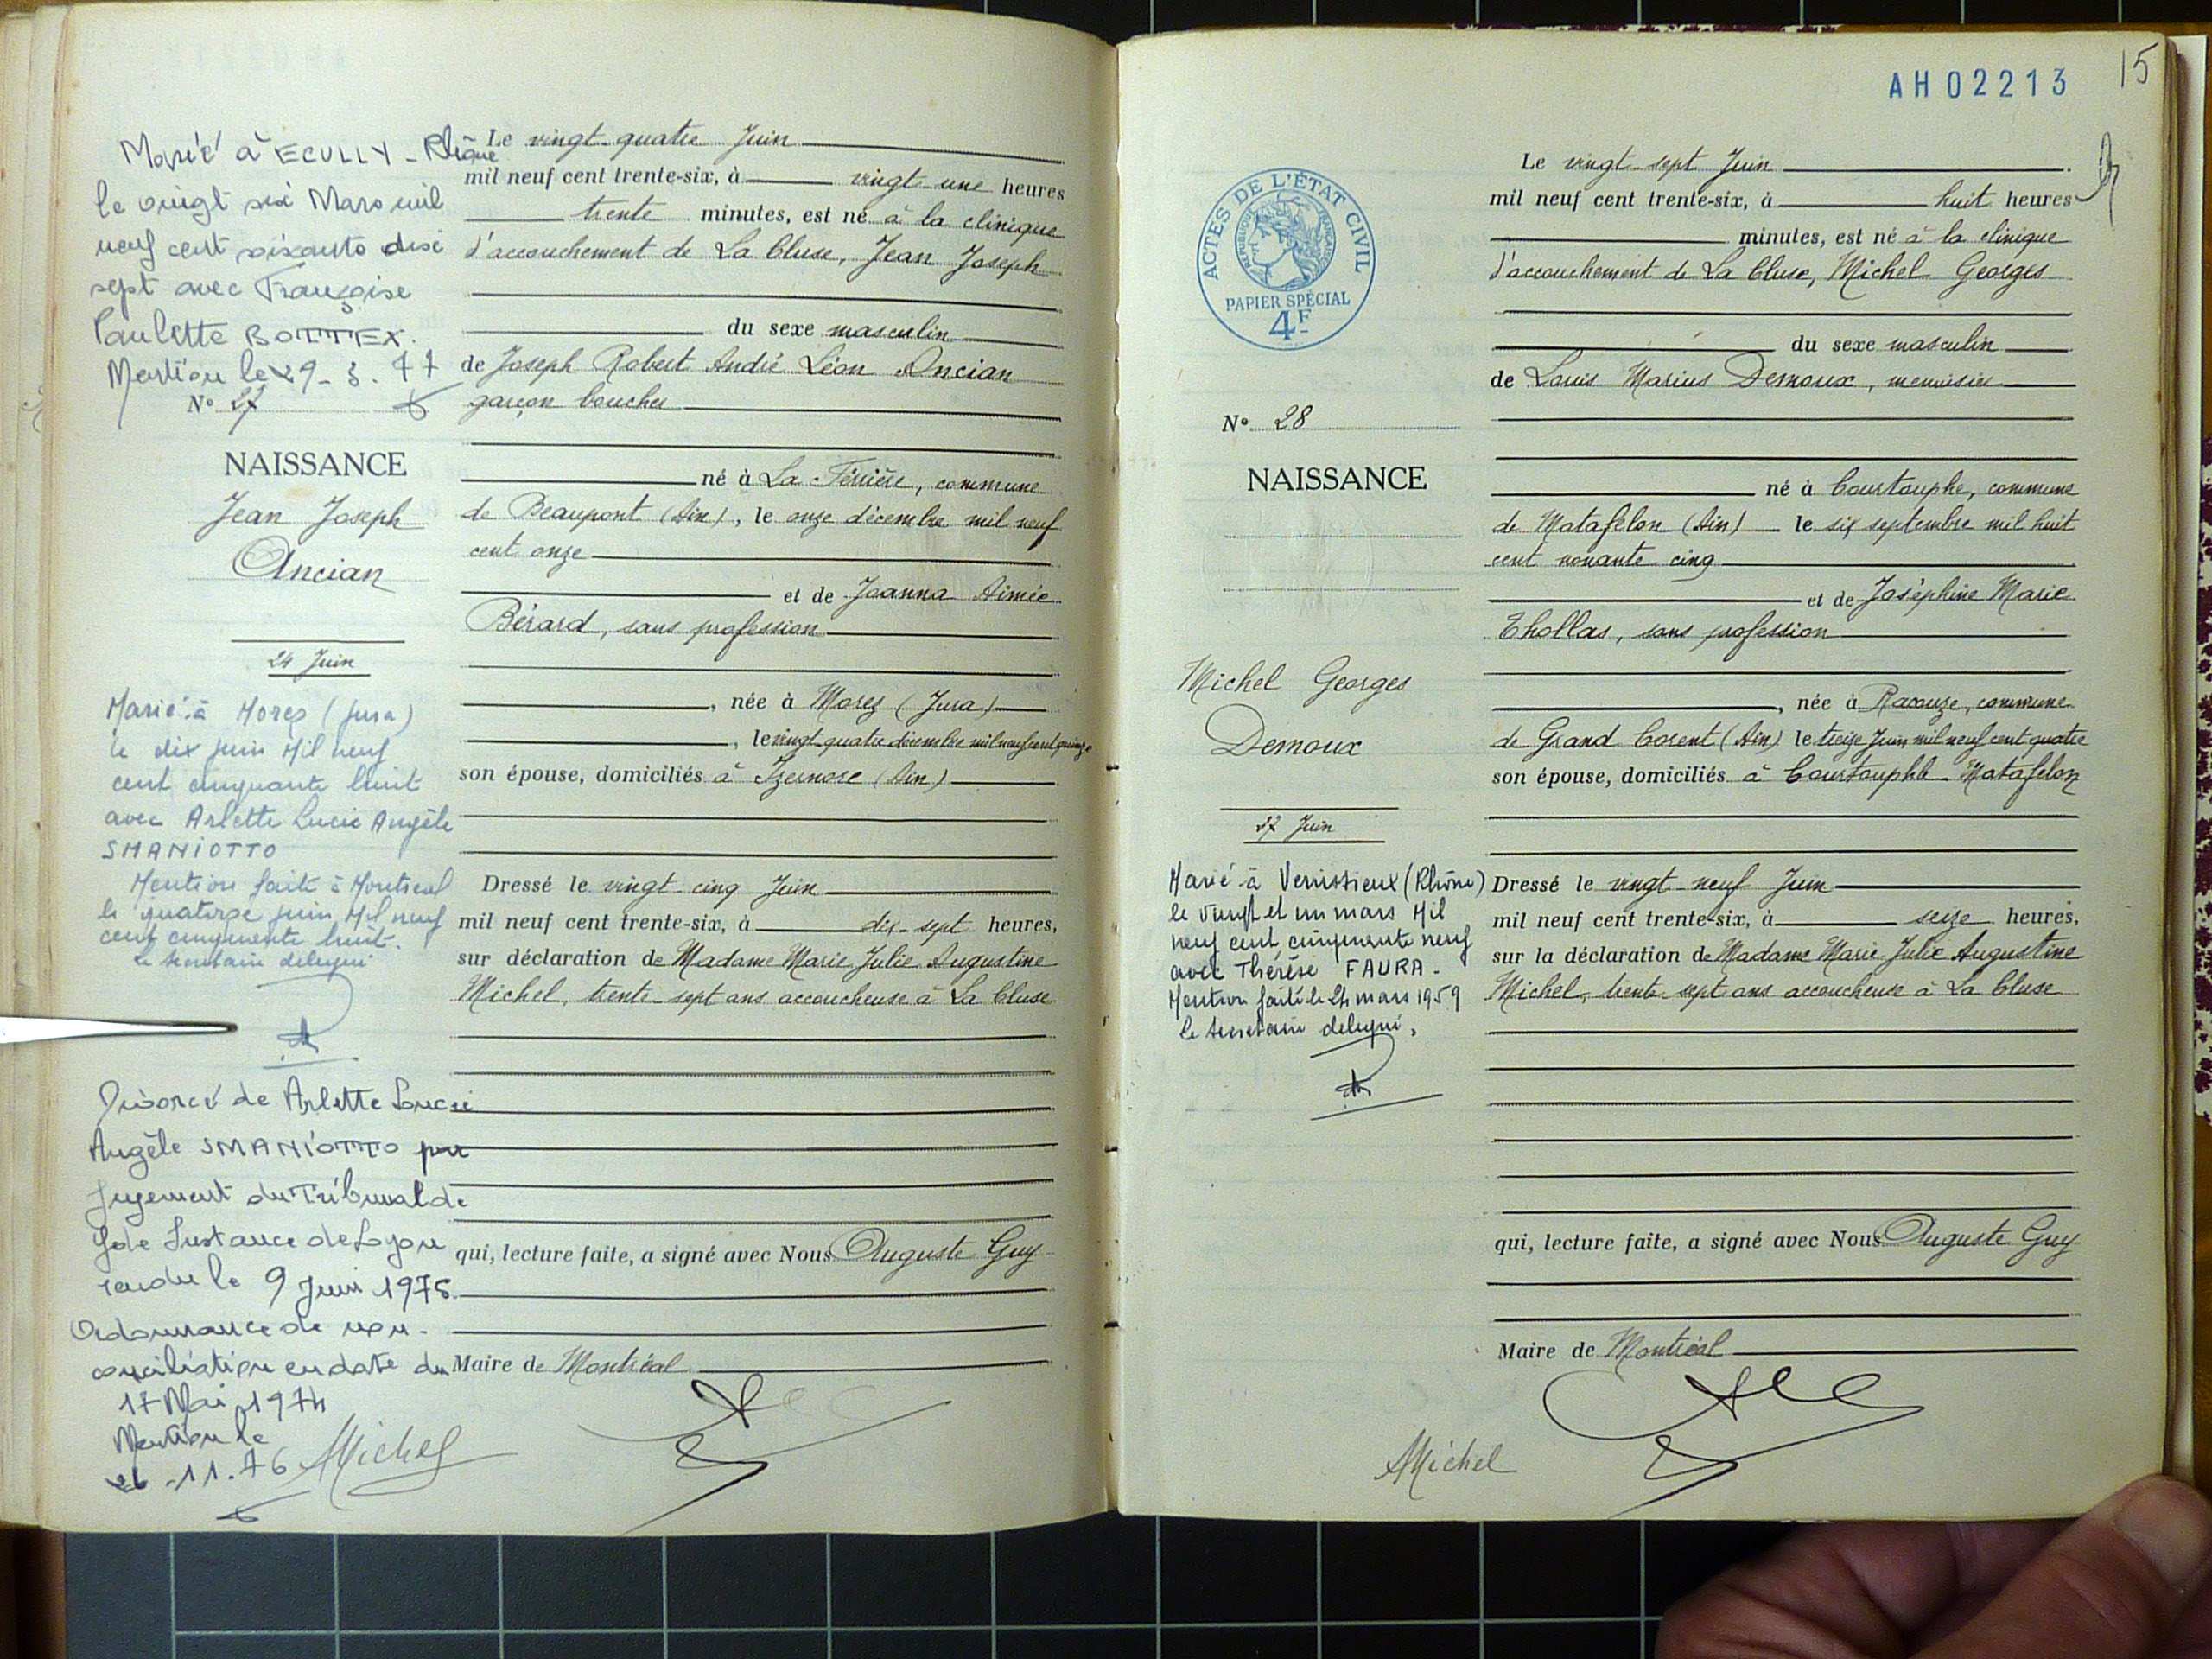 Marié à ECULLY - Rhône
le vingt six Mars mil
neuf cent soixante dix
sept avec Françoise
Paulette BOTTEX.
Mention le 29-3.77
N° 27
NAISSANCE
Jean Joseph
Ancian
24 Juin
Marié à Morez (Jura)
le dix juin Mil neuf
cent cinquante huit
avec Arlette Lucie Angèle
SMANIOTTO
Mention faite à Montréal
le quatorze juin Mil neuf
cent cinquante huit.
le secrétaire délégué
Divorcé de Arlette Lucie
Angèle SMANIOTTO par
jugement du Tribunal de
Gde Instance de Lyon
rendu le 9 Juin 1975.
Ordonnance de non-
conciliation en date du
17 Mai 1974
Mention le
26-11.76
Le vingt-quatre Juin
mil neuf cent trente-six, à vingt une heures
trente minutes, est né à la clinique
d'accouchement de La Cluse, Jean Joseph
du sexe masculin
de Joseph Robert André Léon Ancian
garçon boucher
né à La Férière, commune
de Beaupont (Ain), le onze décembre mil neuf
cent onze
et de Joanna Aimée
Bérard, sans profession
, née à Morez (Jura)
, le vingt-quatre décembre mil neuf cent quinze
son épouse, domiciliés à Izernore (Ain)
Dressé le vingt-cinq Juin
mil neuf cent trente-six, à dix-sept heures,
sur déclaration de Madame Marie Julie Augustine
Michel, trente-sept ans accoucheuse à La Cluse
qui, lecture faite, a signé avec Nous Auguste Guy
Maire de Montréal
AMichel
AH02213
15
ACTES DE L'ÉTAT CIVIL
RÉPUBLIQUE FRANÇAISE
PAPIER SPÉCIAL
4F
N° 28
NAISSANCE
Michel Georges
Demoux
27 Juin
Marié à Venissieux (Rhône)
le vingt et un mars Mil
neuf cent cinquante neuf
avec Thérèse FAURA -
Mention faite le 24 mars 1959
le secrétaire délégué,
Le vingt-sept Juin
mil neuf cent trente-six, à huit heures
minutes, est né à la clinique
d'accouchement de La Cluse, Michel Georges
du sexe masculin
de Louis Marius Demoux, menuisier
né à Courtouphle, commune
de Matafelon (Ain) le six septembre mil huit
cent nonante cinq
et de Joséphine Marie
Thollas, sans profession
, née à Racouze, commune
de Grand Corent (Ain) le treize Juin mil neuf cent quatre
son épouse, domiciliés à Courtouphle-Matafelon
Dressé le vingt-neuf Juin
mil neuf cent trente-six, à seize heures,
sur la déclaration de Madame Marie Julie Augustine
Michel, trente-sept ans accoucheuse à La Cluse
qui, lecture faite, a signé avec Nous Auguste Guy
Maire de Montréal
AMichel